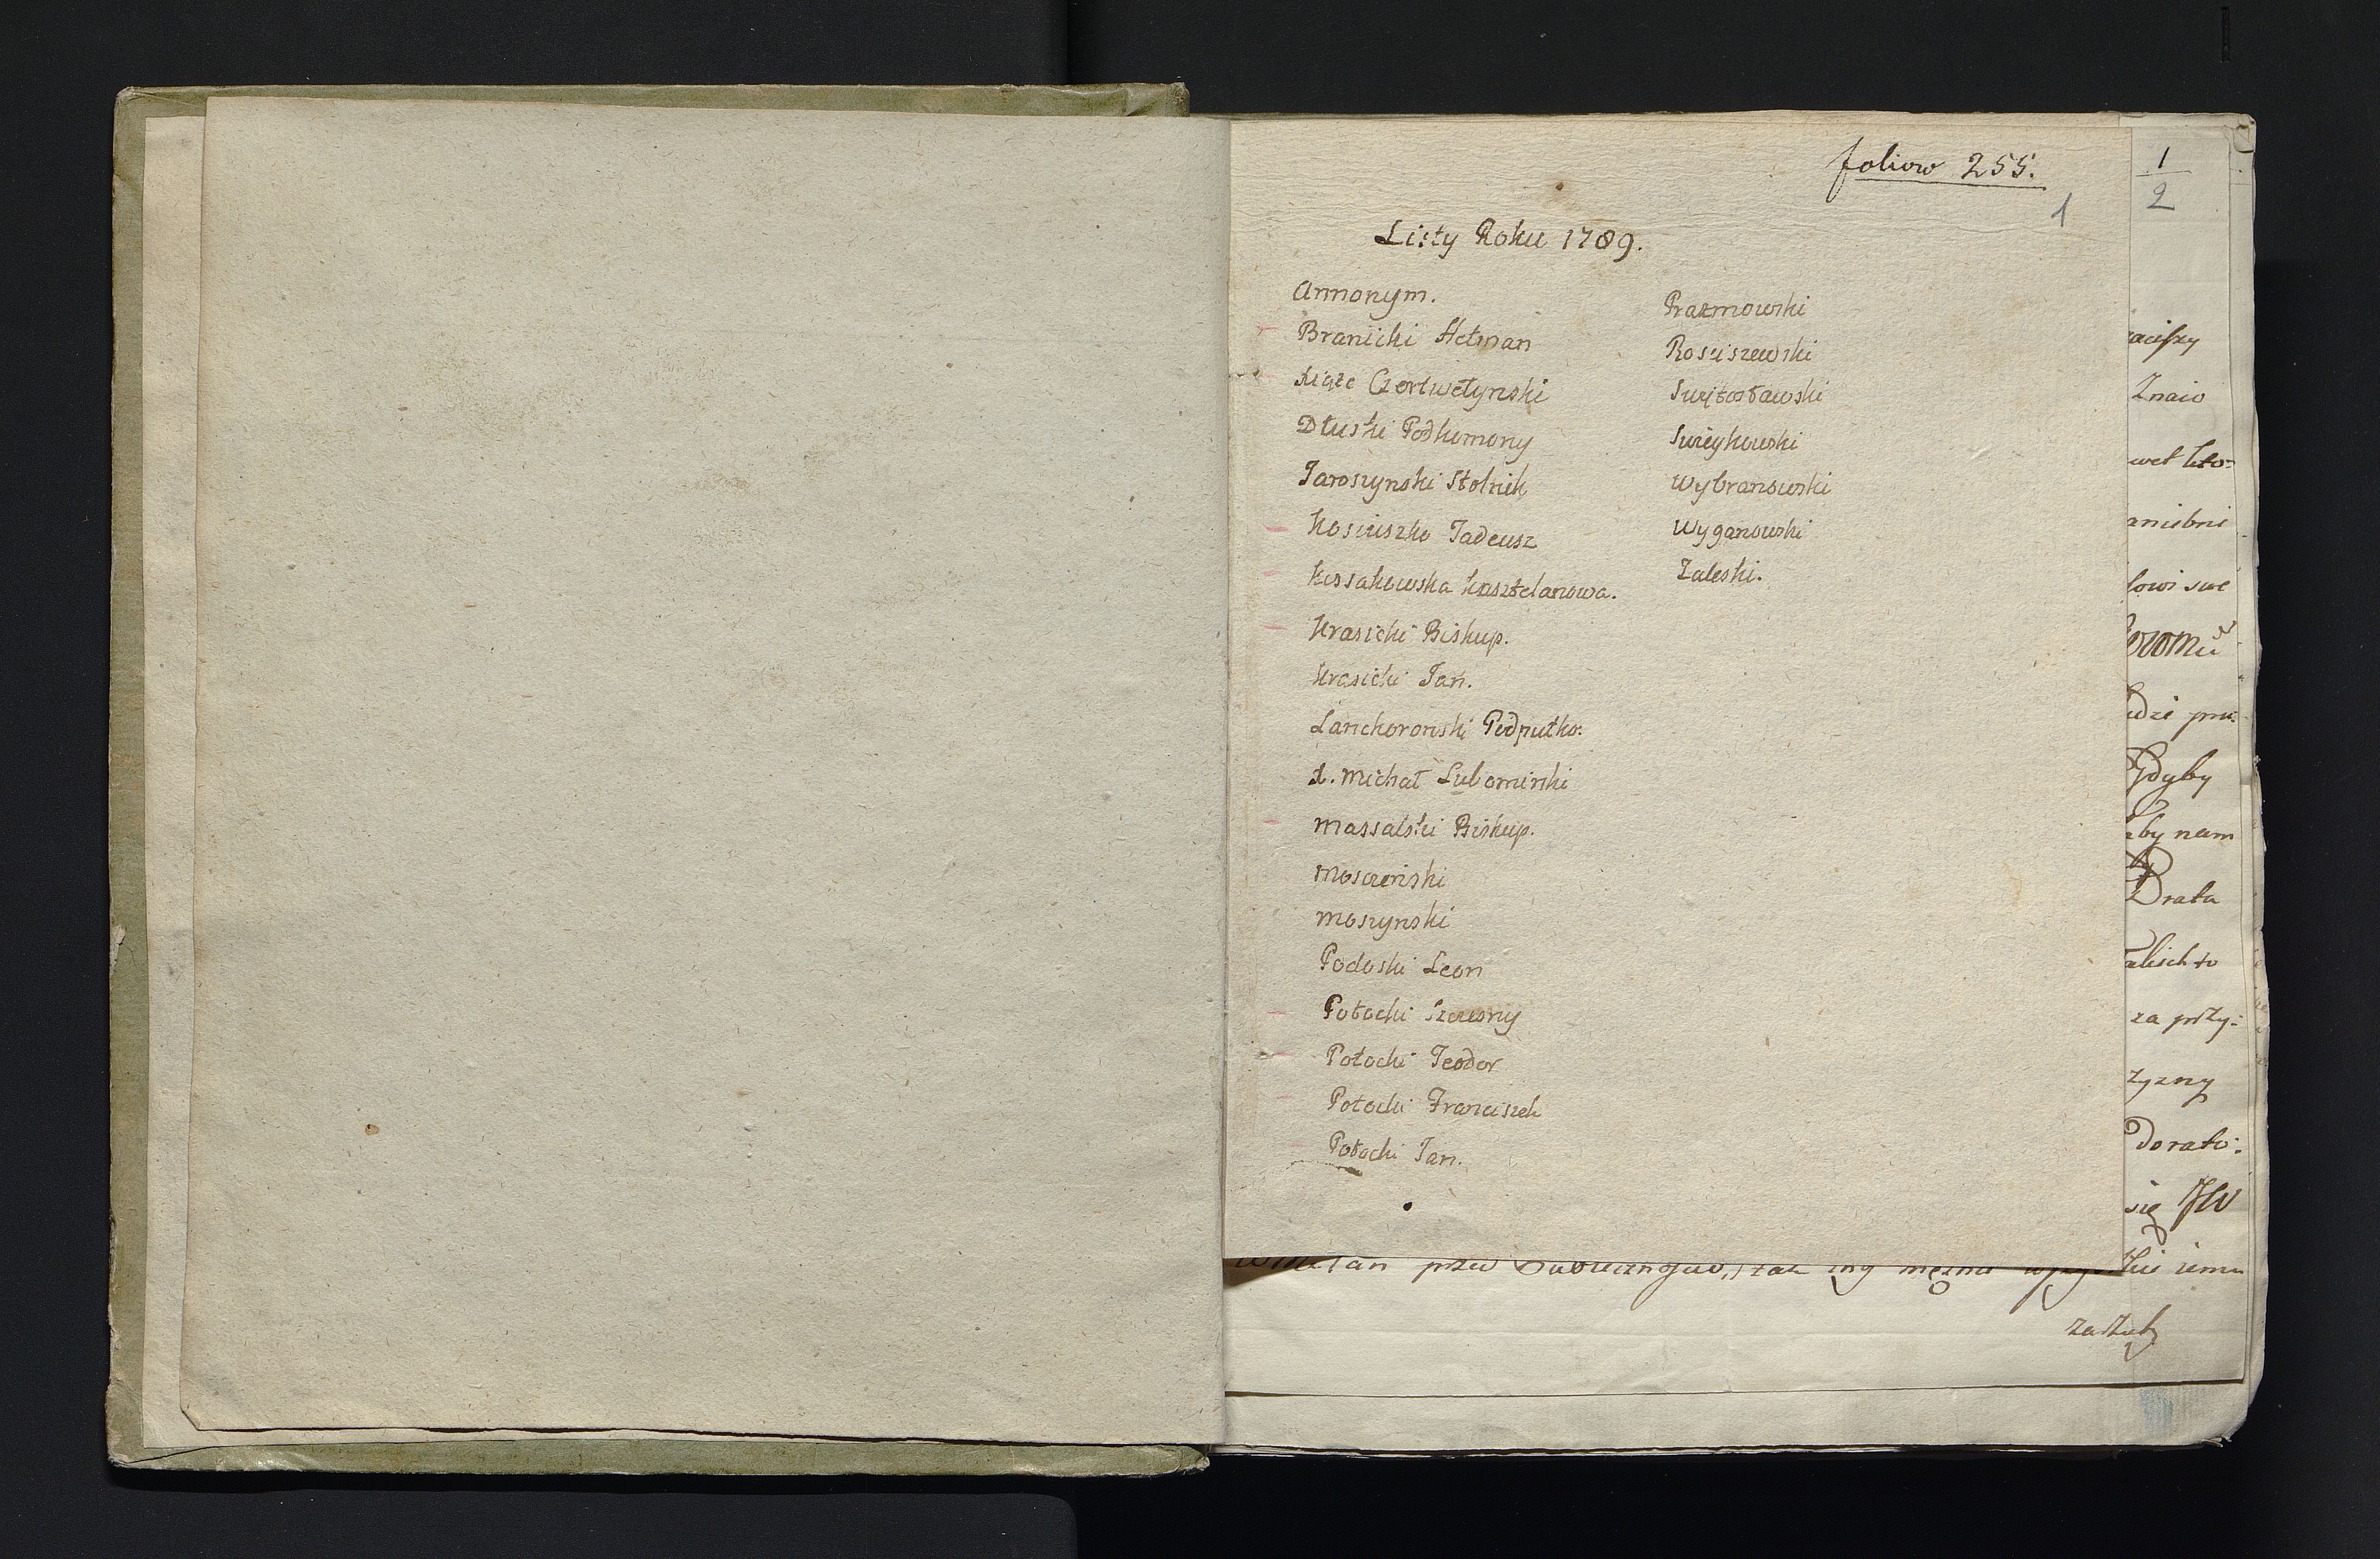 foliow 255.
1
Listy Roku 1789.
Annonym.
Branicki Hetman
Xiąże Czertwetynski
Dłuski Podkomory
Jaroszynski Stolnik
Kosciuszko Tadeusz
Kossakowska Kasztelanowa.
Krasicki Biskup.
Krasicki Jan.
Lanckoronski Podpułko:
X. Michał Lubomirski
Massalski Biskup.
Moszczenski
Moszynski
Podoski Leon
Potocki Szczesny
Potocki Teodor
Potocki Franciszek
Potocki Jan.
Prazmowski
Rosciszewski
Swiętosławski
Swieykowski
Wybranowski
Wyganowski
Zaleski.
1
2
Znaio
lowi swe
Gdyby
by nam
Brata
za przy:
zyzny
się JW
iemu